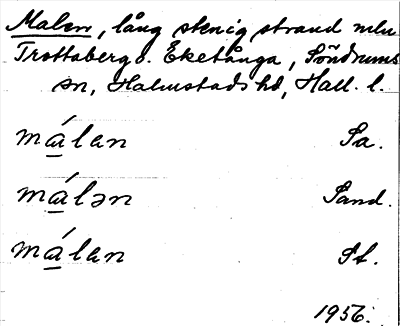 Malen, lång stenig strand mln
Trottaberg o. Eketånga, Söndrums
sn, Halmstads hd, Hall. l.
málan Sa.
málən Sand.
málan St.
1956.